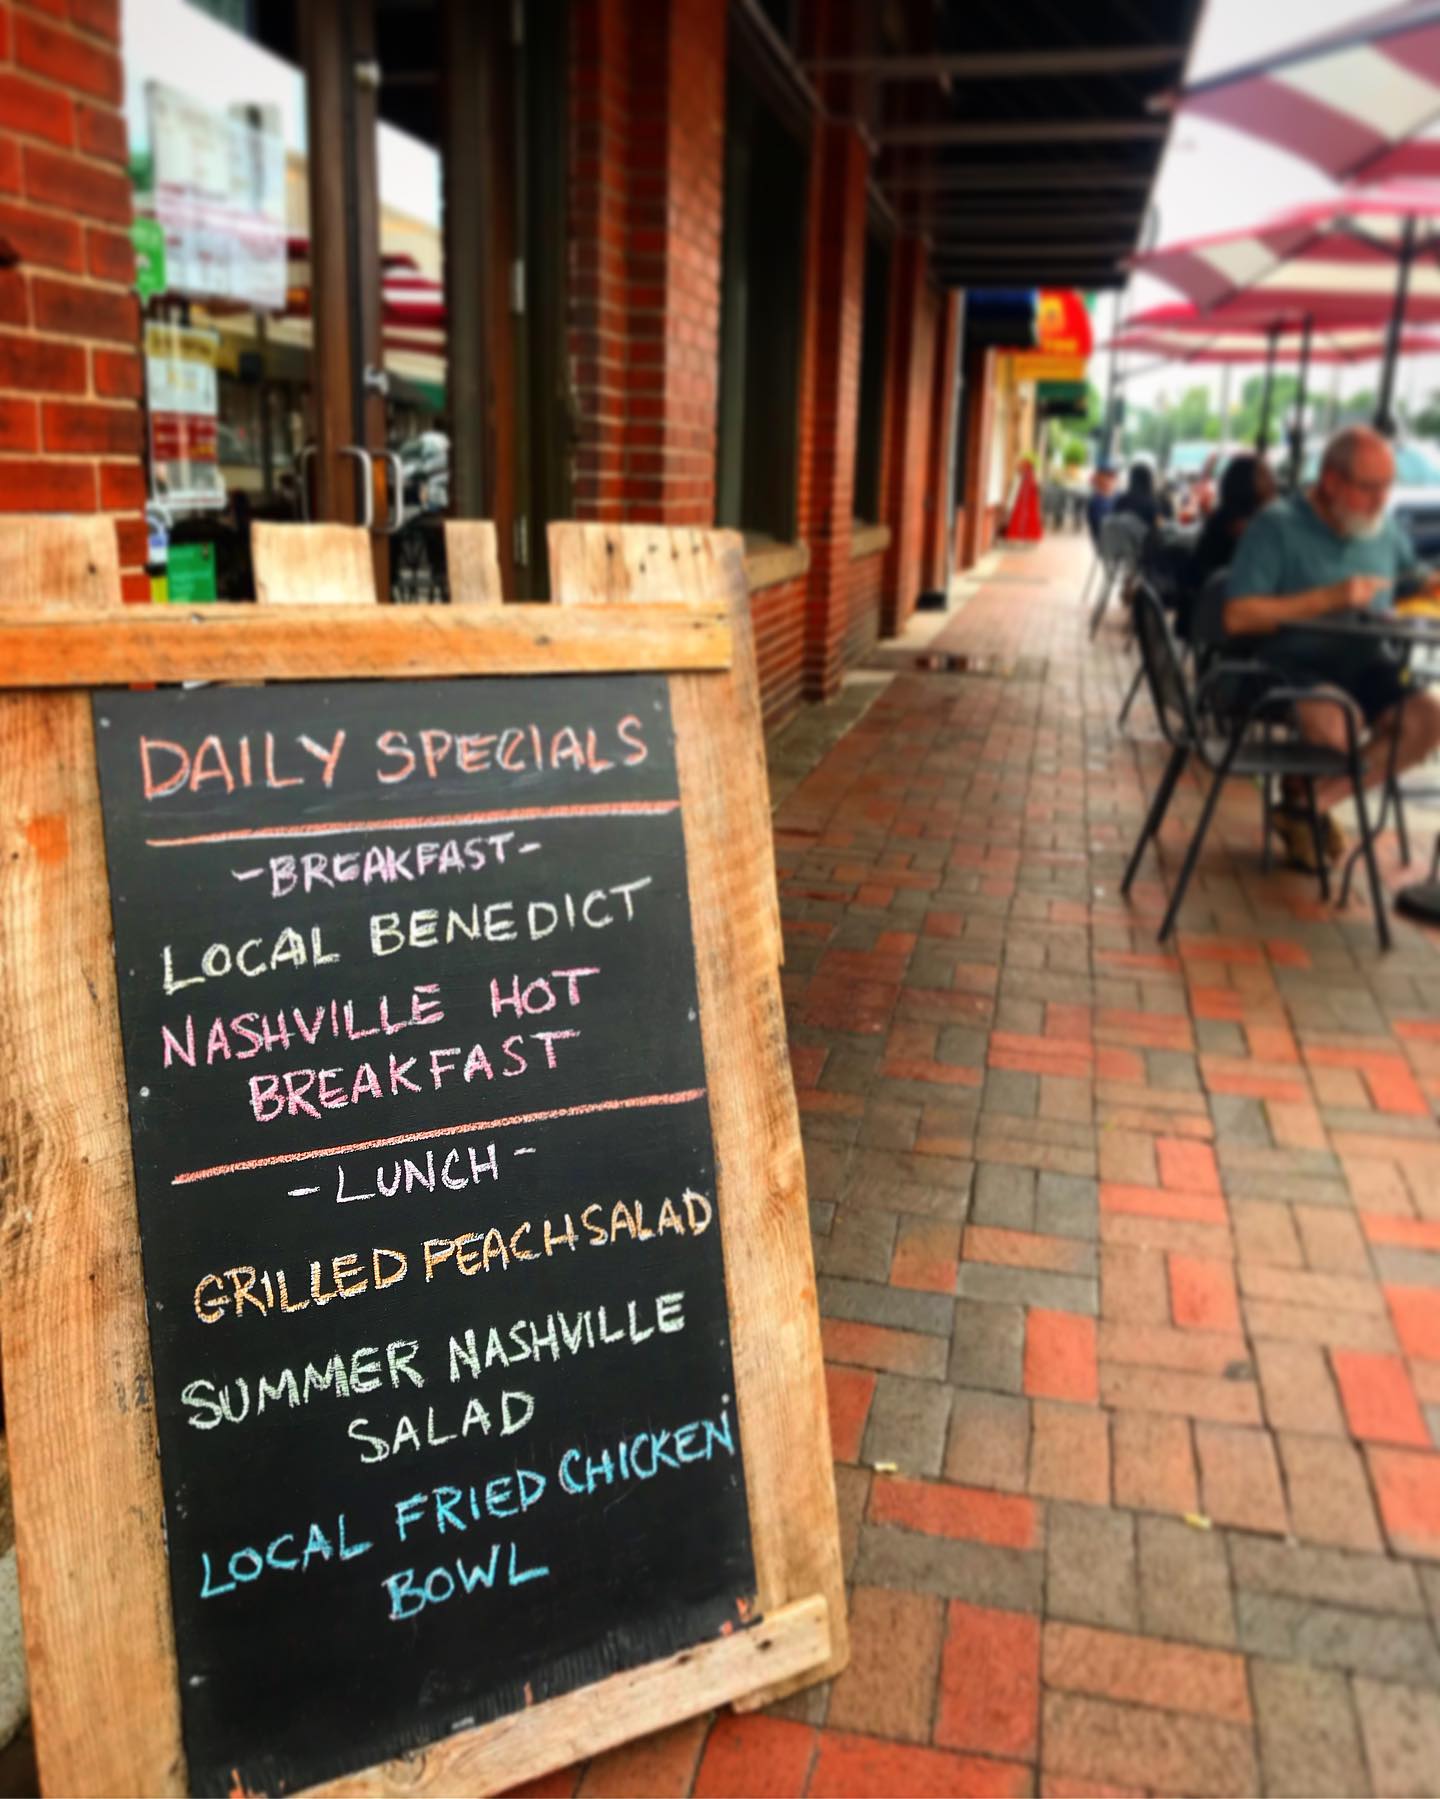 DAILY SPECIALS
-BREAKFAST-
LOCAL BENEDICT
NASHVILLE HOT
BREAKFAST
-LUNCH-
GRILLED PEACH SALAD
SUMMER NASHVILLE
SALAD
LOCAL FRIED CHICKEN
BOWL